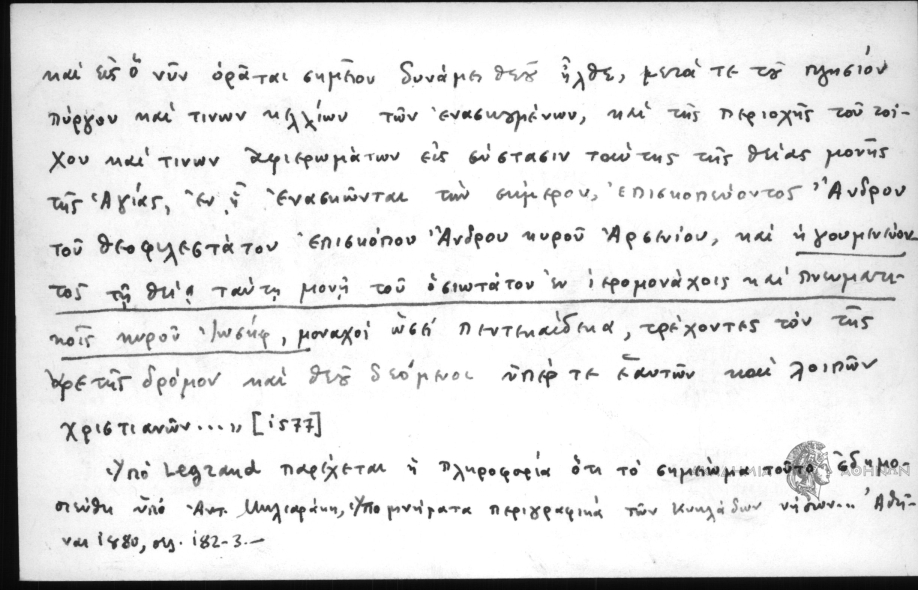 καὶ εἰς ὃ νῦν ὁρᾶται σημεῖον δυνάμει θεοῦ ἦλθε, μετά τε τοῦ πλησίον
πύργου καί τινων κελλίων τῶν ἐνασκουμένων, καὶ τῆς περιοχῆς τοῦ τοί-
χου καί τινων ἀφιερωμάτων εἰς σύστασιν ταύτης τῆς θείας μονῆς
τῆς Ἁγίας, ἐν ᾗ ἐνασκῶνται τὴν σήμερον, ἐπισκοπεύοντος Ἄνδρου
τοῦ θεοφιλεστάτου ἐπισκόπου Ἄνδρου κυροῦ Ἀρσενίου, καὶ ἡγουμενεύον-
τος τῇ θείᾳ ταύτῃ μονῇ τοῦ ὁσιωτάτου ἐν ἱερομονάχοις καὶ πνευματι-
κοῖς κυροῦ Ἰωσήφ, μοναχοὶ ὡσεὶ πεντεκαίδεκα, τρέχοντες τὸν τῆς
ἀρετῆς δρόμον καὶ θεοῦ δεόμενοι ὑπέρ τε ἑαυτῶν καὶ λοιπῶν
χριστιανῶν....» [1577]
Ὑπὸ Legrand παρέχεται ἡ πληροφορία ὅτι τὸ σημείωμα τοῦτο ἐδημο-
σιεύθη ὑπὸ Ἀντ. Μηλιαράκη, Ὑπομνήματα περιγραφικὰ τῶν Κυκλάδων νήσων... Ἀθῆ-
ναι 1880, σελ. 182-3.—
ΑΘΗΝΩΝ